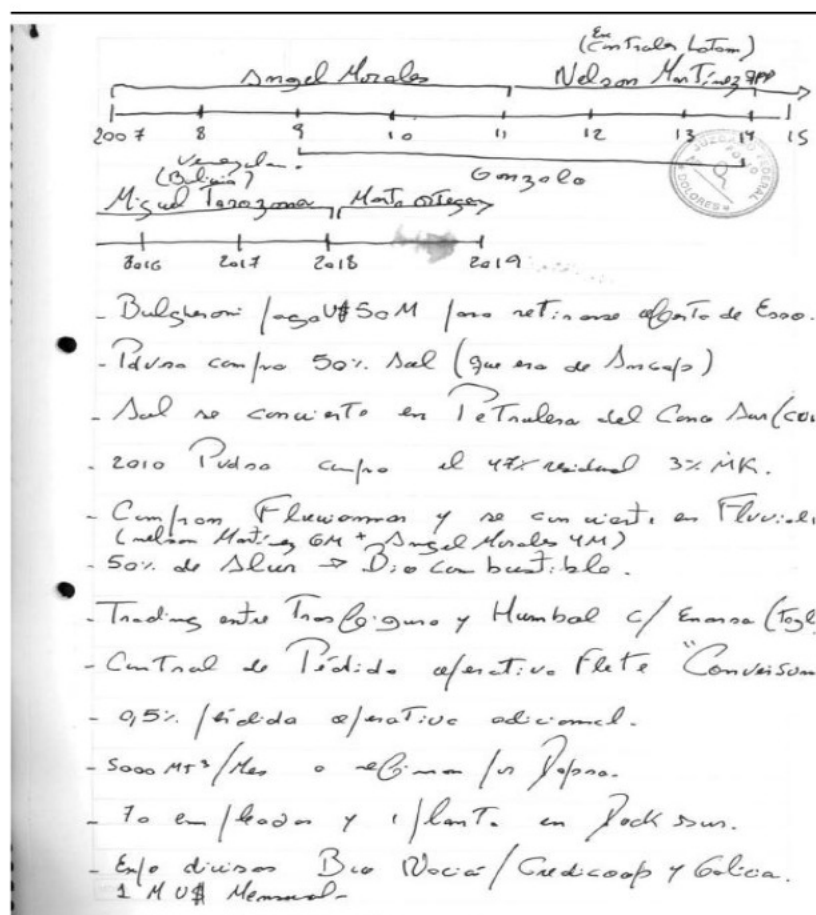 (Ex
Contralor Latam)
Angel Morales Nelson Martínez
2007 8 9 10 11 12 13 14 15
Venezolan.
(Bolivia) Gonzalo
JUZGADO FEDERAL
FOLIO
DOLORES
Miguel Tarazona Marta Ortega
2016 2017 2018 2019
- Bulgheroni pago U$50M para retirarse oferta de Esso.
- Pdvsa compro 50% Sol (que era de Ancap)
- Sol se convierte en Petrolera del Cono Sur
- 2010 Pvdsa compro el 47% residual 3% MK.
- Compran Fluviomar y se convierte en
(nelson Martinez 6M + Angel Morales 4M)
- 50% de Alur → Bio combustible.
- Trading entre Trasfigura y Humbal c/ Enarsa
- Central de Pédida operativa Flete "
- 0,5% pérdida operativa adicional.
- 5000 MT³/Mes a refinar por Dapsa.
- 70 empleados y 1 planta en Dock sur.
- Expo divisas Bco Nación/Credicoop y Galicia.
1 M U$ Mensual-